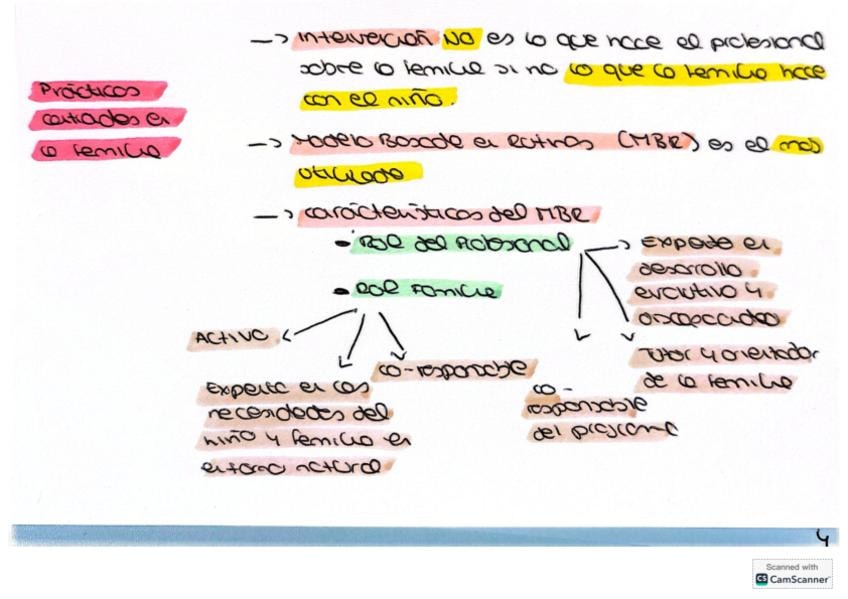 Prácticas
centradas en
la familia
→ Intervención NO es lo que hace el profesional
sobre la familia si no lo que la familia hace
con el niño.
→ Modelo Basado en Rutinas (MBR) es el más
utilizado
→ características del MBR
• Rol del Profesional
→ Experto en
desarrollo
evolutivo y
discapacidad
Tutor y orientador
de la familia
co-
responsable
del programa
• Rol Familia
ACTIVO
Experta en las
necesidades del
niño y familia en
entorno natural
co-responsable
4
Scanned with
CS CamScanner